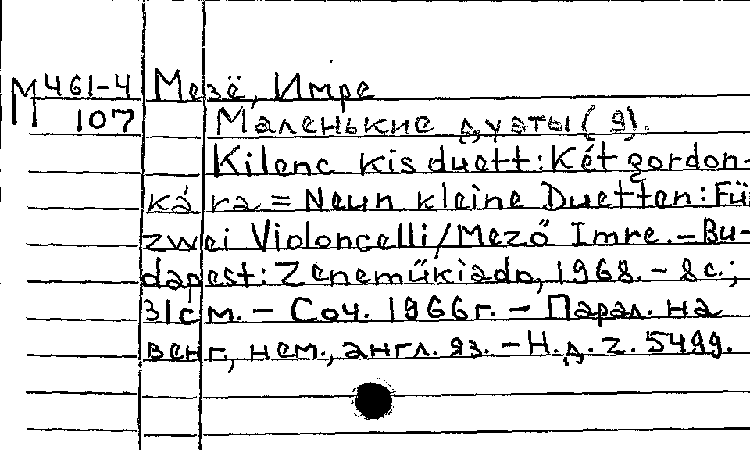 М 461-4 Мезё, Имре
107 Маленькие дуэты (9).
Kilenc kis duett: Két gordon-
ká ra = Neun kleine Duetten: Fü
zwei Violoncelli/Mező Imre. – Bu-
dapest: Zeneműkiado, 1968. – 8 с.;
31 см. – Соч. 1966 г. – Парал. на
венг, нем., англ. яз. – Н. д. Z. 5499.